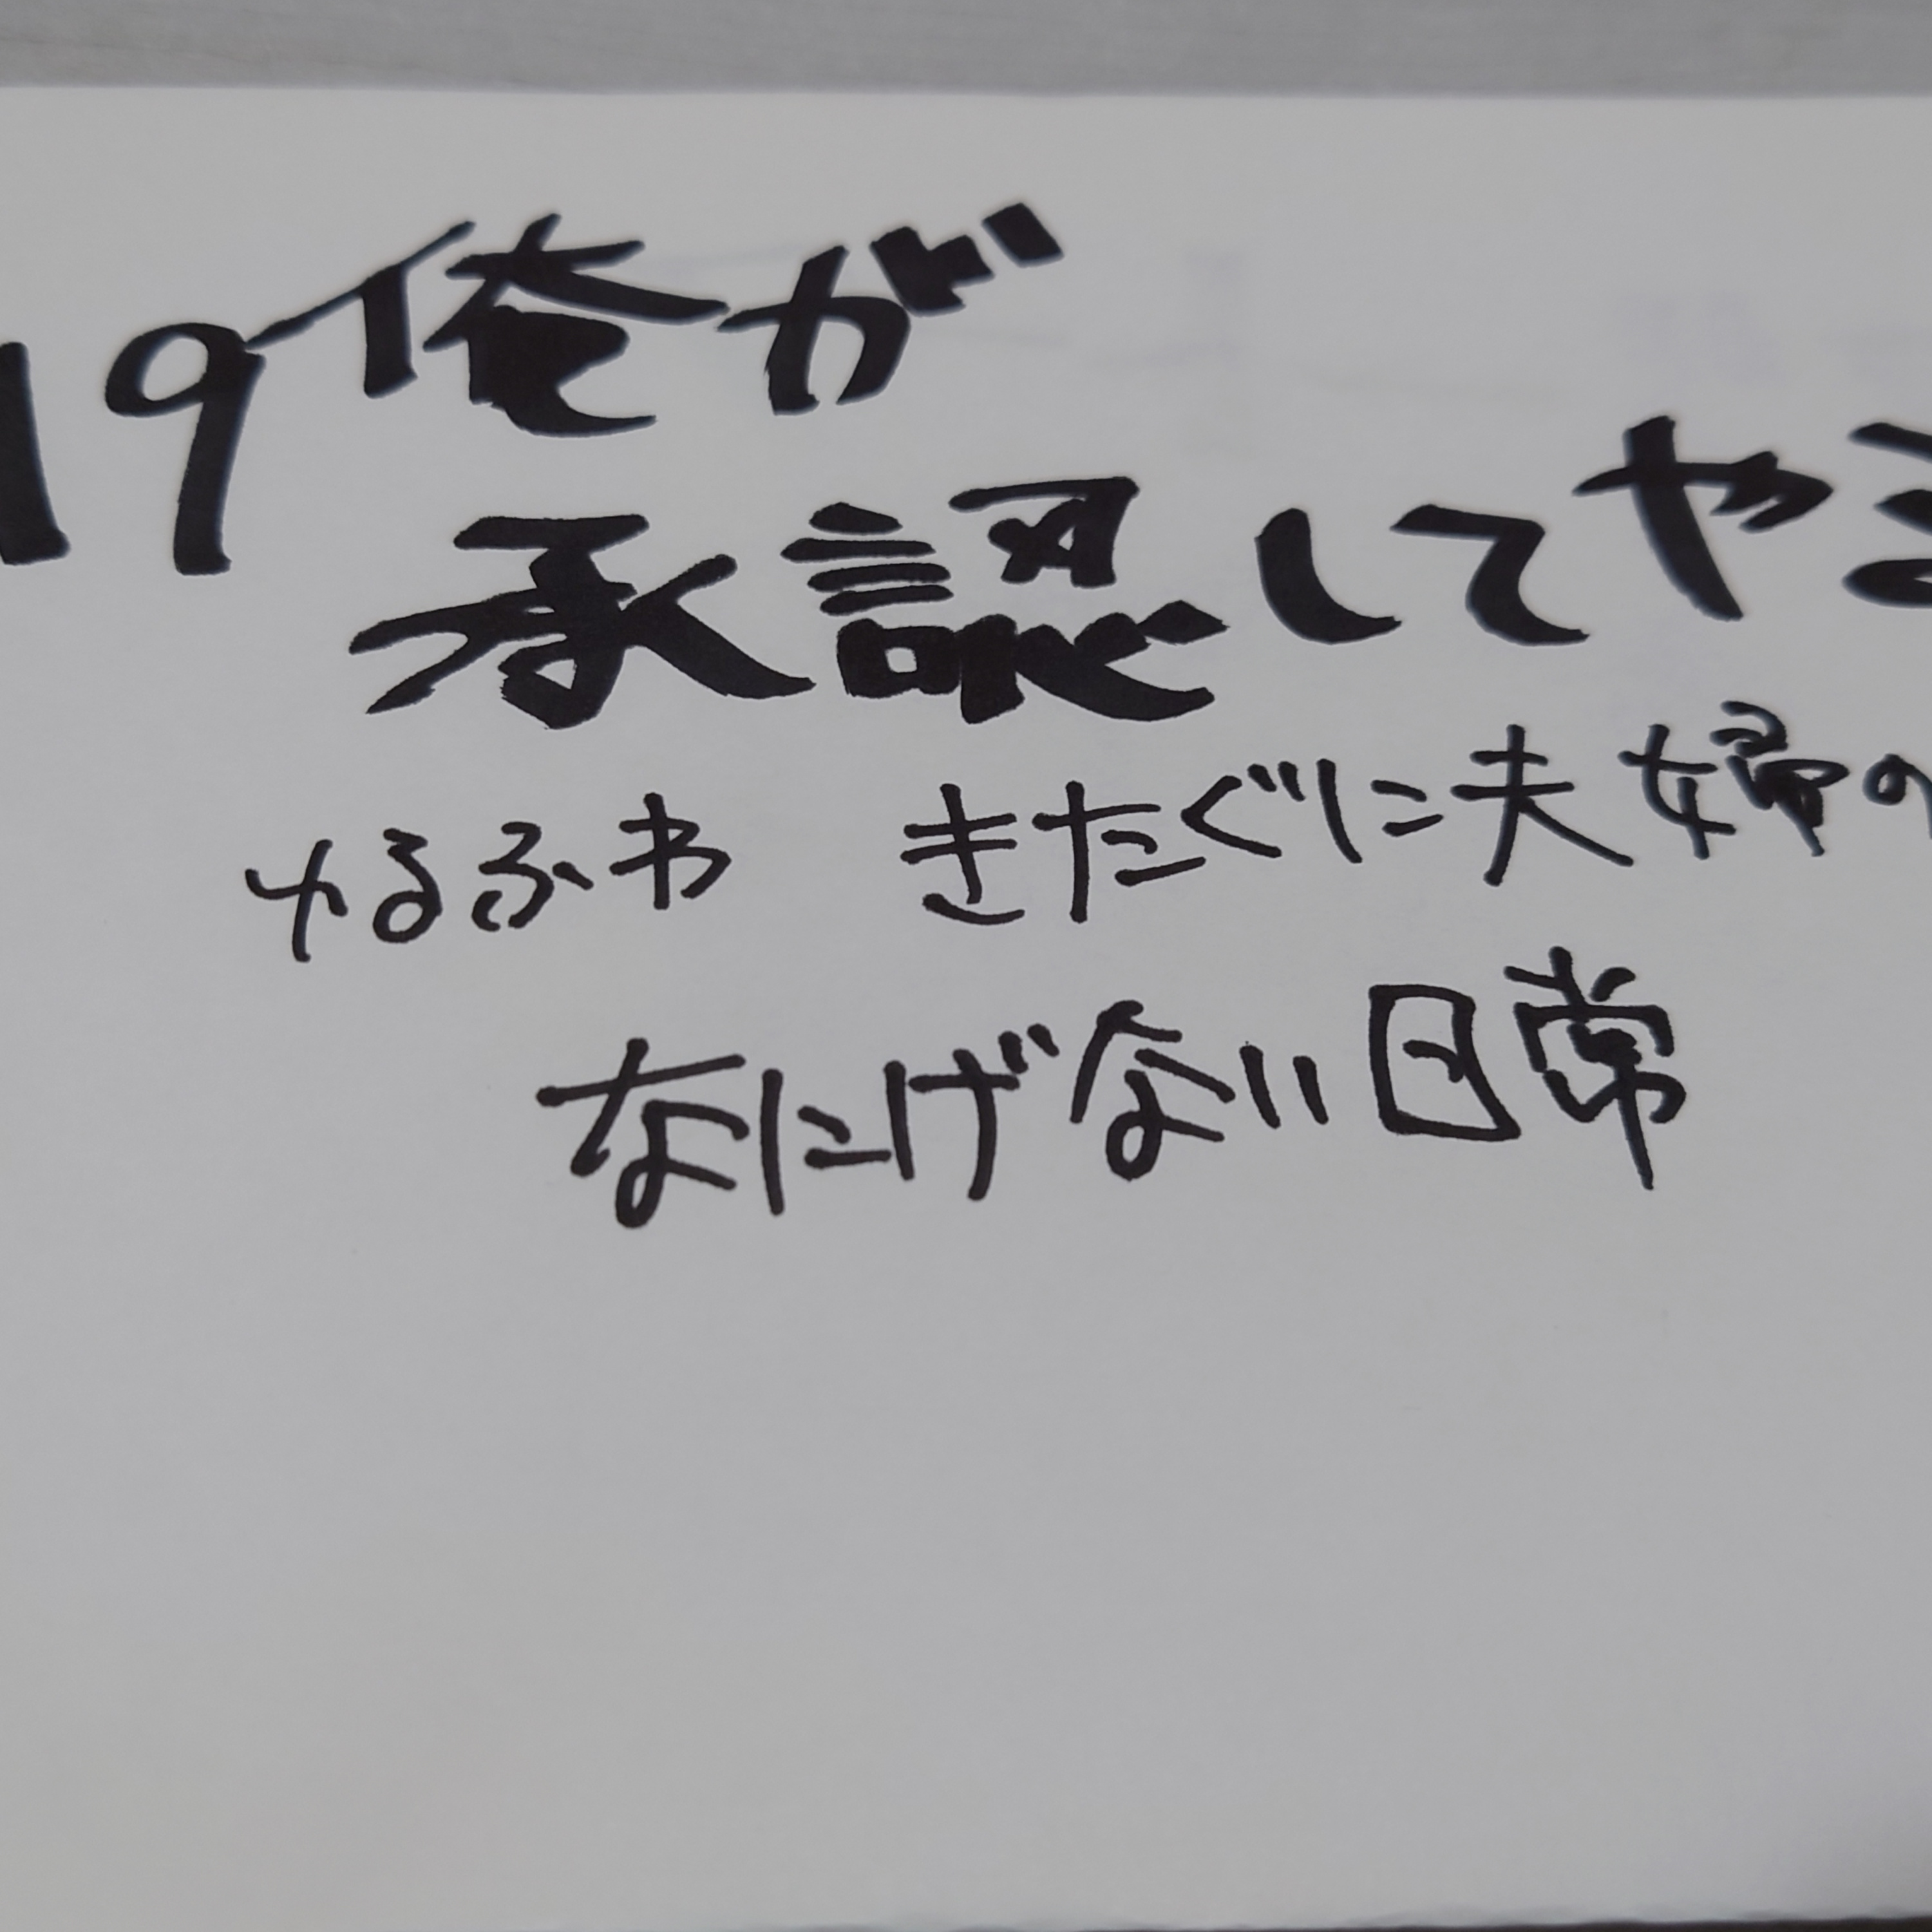 19 俺が
承認してやる
ゆるふわ きたぐに夫婦の
なにげない日常